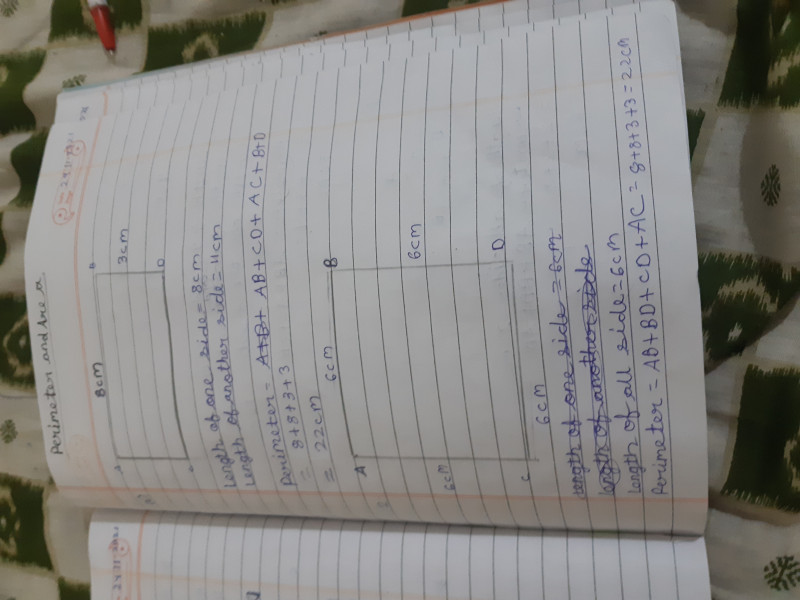 Perimeter and Area
8cm
A
B
3cm
D
Length of one side = 8cm
Length of another side = 11cm
Perimeter = A+B+ AB+CD+AC+BD
= 8+8+3+3
= 22cm
A
6cm
B
6cm
6cm
C
D
6cm
Length of one side = 6cm
Length of another side
Length of all side = 6cm
Perimeter = AB+BD+CD+AC = 8+8+3+3=22cm